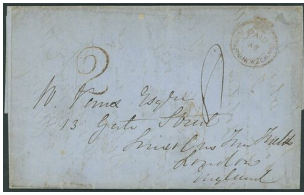 2
W. Vance Esqre
13 Gate Street
Lincolns Inn Fields
London
England
PAID